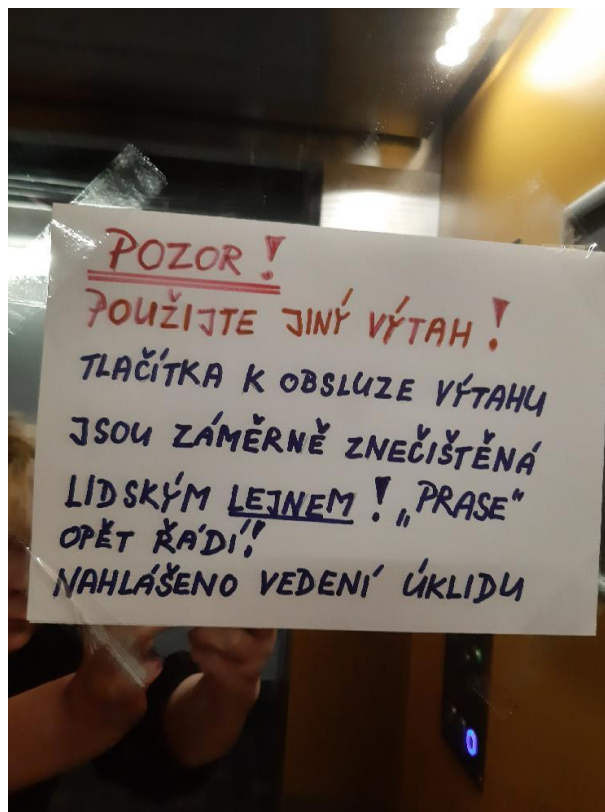 POZOR!
POUŽIJTE JINÝ VÝTAH!
TLAČÍTKA K OBSLUZE VÝTAHU
JSOU ZÁMĚRNĚ ZNEČIŠTĚNÁ
LIDSKÝM LEJNEM! „PRASE“
OPĚT ŘÁDÍ!
NAHLÁŠENO VEDENÍ ÚKLIDU